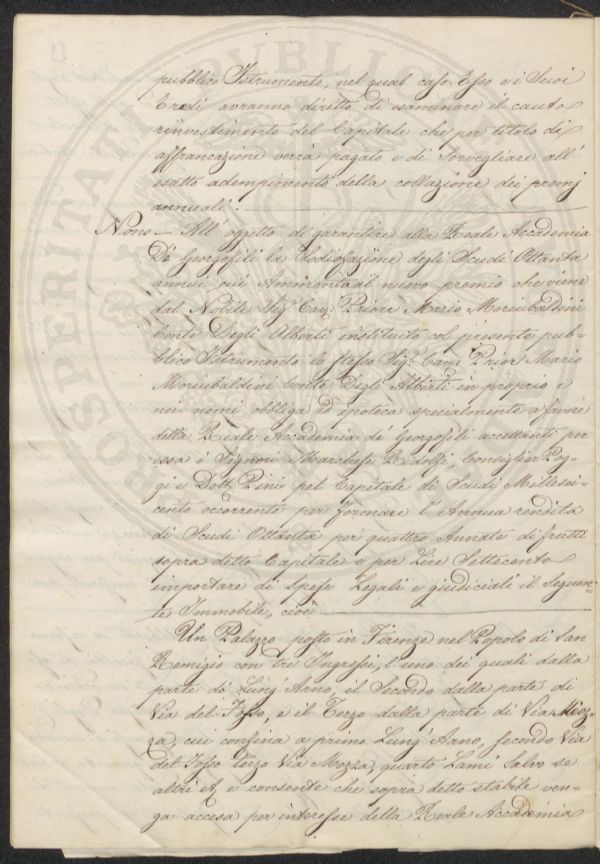 pubblico Istrumento, nel qual caso Esso e i Suoi
Eredi avranno diritto di esaminare il cauto
rinvestimento del Capitale che per titolo di
affrancazione verrà pagato e di Sorvegliare all'
esatto adempimento della collazione dei premj
annuali.
Nono — All' oggetto di garantire alla Reale Accademia
De' Georgofili la Sodisfazione degli Scudi Ottanta
annui cui Ammonta il nuovo premio che viene
dal Nobile Sig. Cav. Priore Mario Moriubaldini
Conte Degli Alberti instituito col presente pub-
blico Istrumento lo stesso Sig. Cav. Prior Mario
Moriubaldini Conte Degli Alberti in proprio e
nei nomi obbliga ed ipoteca specialmente a favore
della Reale Accademia de' Georgofili accettanti per
essa i Signori Marchese Ridolfi, Consiglier Pog-
gi e Dott. Pini pel Capitale di Scudi Millesei-
cento occorrente per formare l'Annua rendita
di Scudi Ottanta per quattro Annate di frutti
sopra detto Capitale e per Lire Settecento
importare di Spese Legali e giudiciali il Seguen-
te Immobile, cioè:
Un Palazzo posto in Firenze nel Popolo di San
Remigio con tre Ingressi, l'uno dei quali dalla
parte di Lung'Arno, il Secondo dalla parte di
Via del Fosso, e il Terzo dalla parte di Via Moz-
za, cui confina a primo Lung'Arno, secondo Via
del Fosso terzo Via Mozza, quarto Lami Salvo se
altri &. e consente che sopra detto stabile ven-
ga accesa per interesse della Reale Accademia
PROSPERITATI PUBLICAE